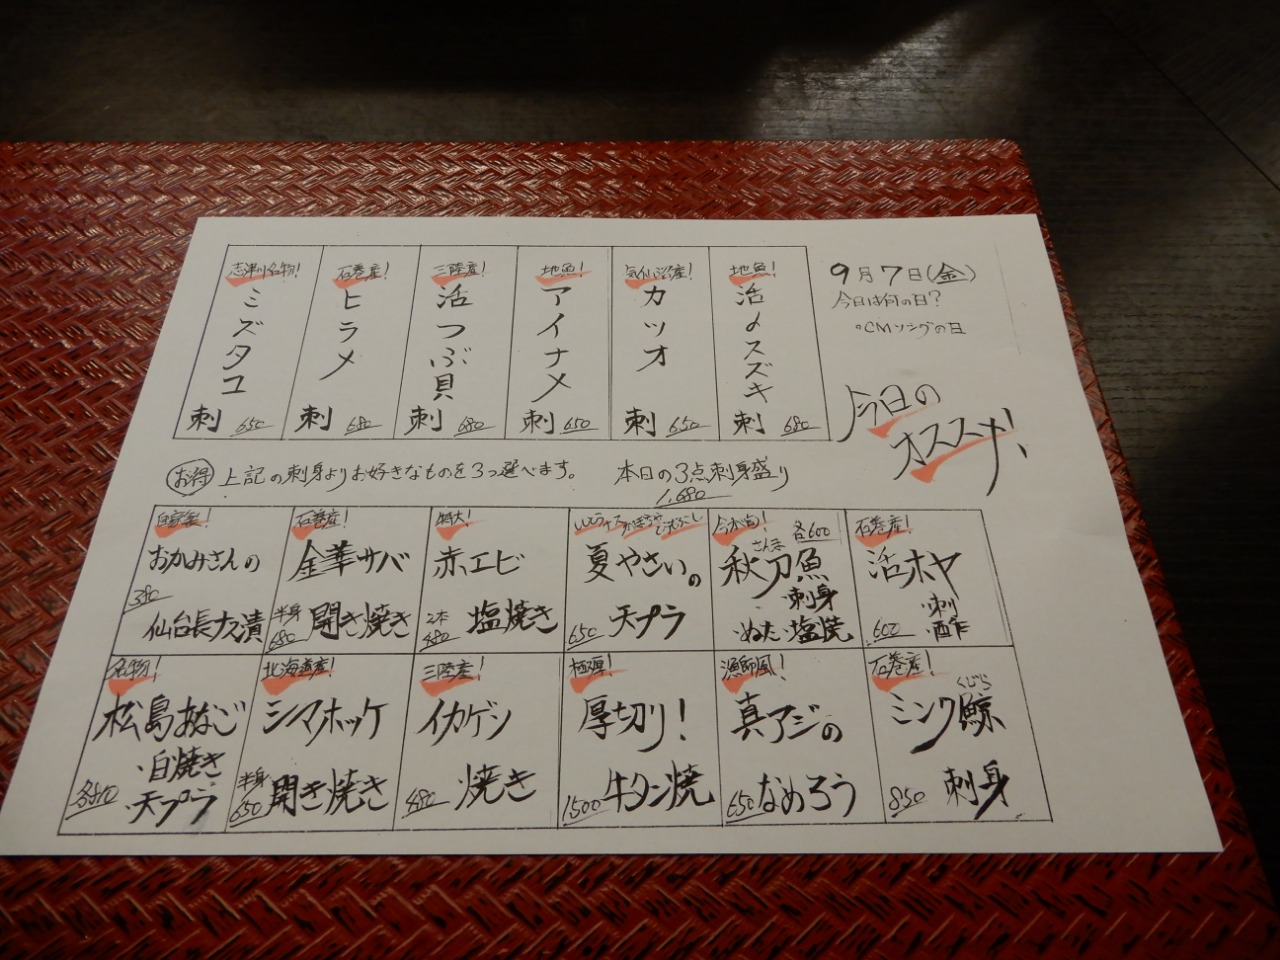 9月7日(金)
今日は何の日?
○CMソングの日
今日の
オススメ!
志津川名物!
ミズタコ
刺 650
石巻産!
ヒラメ
刺 680
三陸産!
活つぶ貝
刺 680
地魚!
アイナメ
刺 650
気仙沼産!
カツオ
刺 650
地魚!
活〆スズキ
刺 680
お得 上記の刺身よりお好きなものを3つ選べます。 本日の3点刺身盛り
1,680
自家製!
おかみさんの
380
仙台長ナス漬
石巻産!
金華サバ
半身
680 開き焼き
特大!
赤エビ
2本
480 塩焼き
夏やさいの
650 天プラ
各600
さんま
秋刀魚
・刺身
・ぬた・塩焼
石巻産!
活ホヤ
・刺
600 ・酢
名物!
松島あなご
・白焼き
・天プラ
北海道産!
シマホッケ
半身
650 開き焼き
三陸産!
イカゲソ
480 焼き
極厚!
厚切り!
1500 牛タン焼
漁師風!
真アジの
650 なめろう
石巻産!
くじら
ミンク鯨
850 刺身